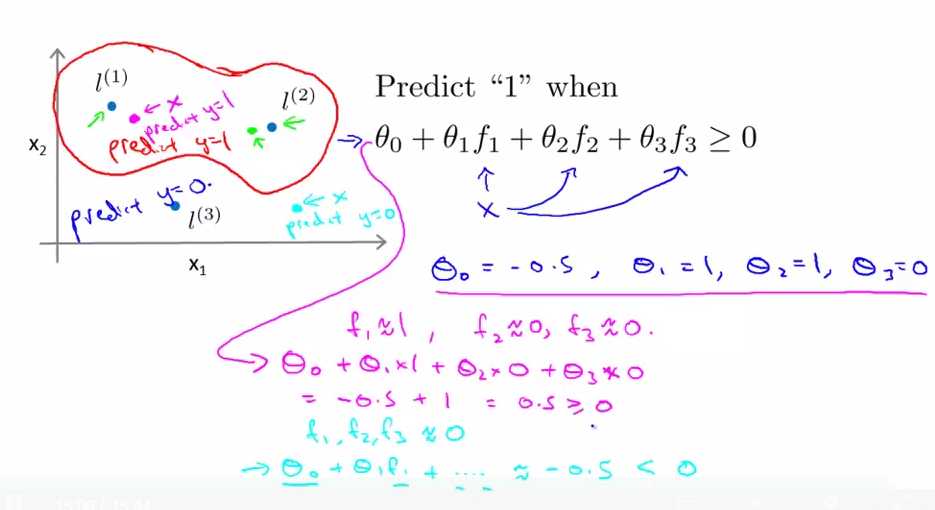 l^(1)
x
l^(2)
predict y=1
predict y=1
x₂
predict y=0.
l^(3)
x
predict y=0
x₁
Predict “1” when
θ₀ + θ₁f₁ + θ₂f₂ + θ₃f₃ ≥ 0
x
θ₀ = -0.5 , θ₁ = 1, θ₂ = 1, θ₃ = 0
f₁ ≈ 1 , f₂ ≈ 0, f₃ ≈ 0.
θ₀ + θ₁×1 + θ₂×0 + θ₃×0
= -0.5 + 1 = 0.5 ≥ 0
f₁, f₂, f₃ ≈ 0
→ θ₀ + θ₁f₁ + .... ≈ -0.5 < 0